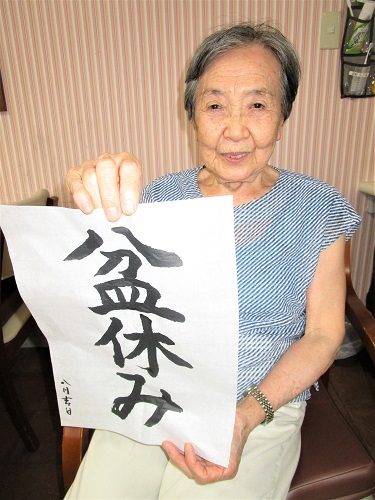 盆休み
八月吉日